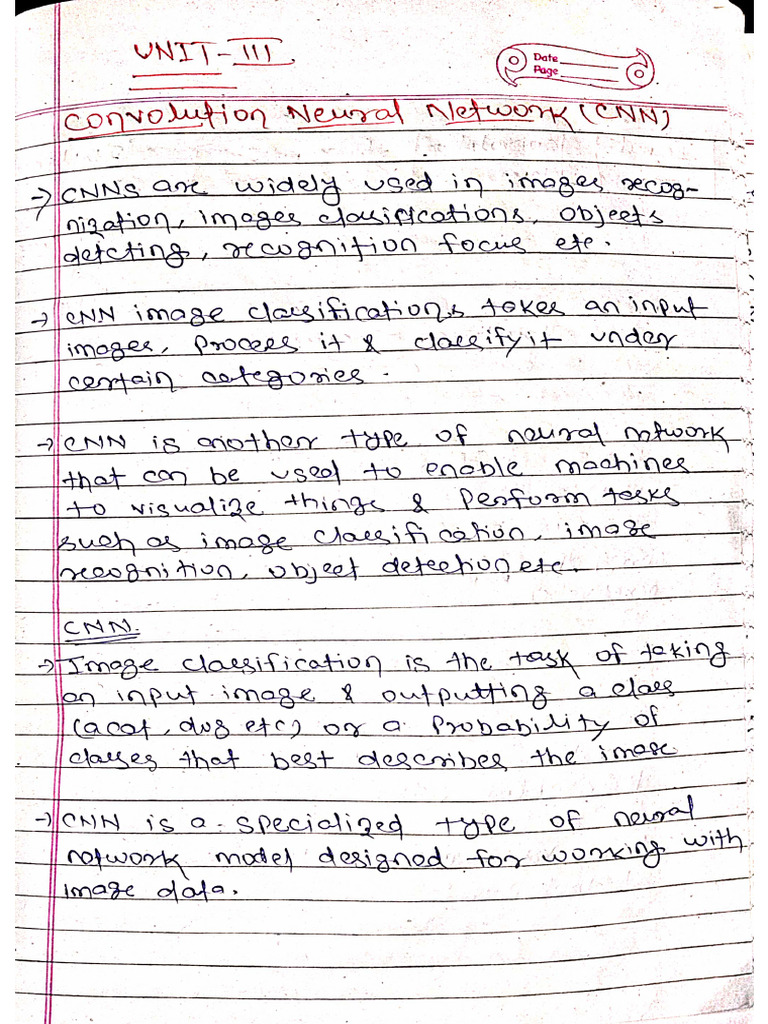 UNIT-III
Date
Page
Convolution Neural Network (CNN)
→ CNNs are widely used in images recog-
nization, images classifications, objects
detcting, recognition focus etc.
→ CNN image classifications takes an input
images, process it & classify it under
certain categories.
→ CNN is another type of neural network
that can be used to enable machines
to visualize things & perform tasks
such as image classification, image
recognition, object detection etc.
CNN.
→ Image classification is the task of taking
an input image & outputting a class
(a cat, dog etc) or a probability of
classes that best describes the image
→ CNN is a specialized type of neural
network model designed for working with
image data.